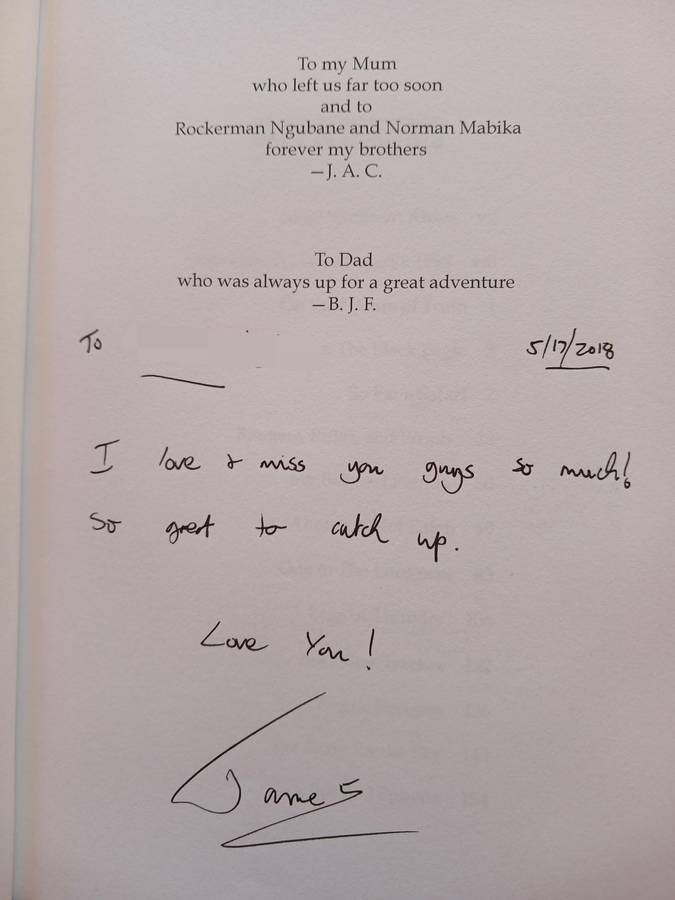 To my Mum
who left us far too soon
and to
Rockerman Ngubane and Norman Mabika
forever my brothers
—J. A. C.
To Dad
who was always up for a great adventure
—B. J. F.
To
5/17/2018
I love & miss you guys so much!
So great to catch up.
Love You!
James